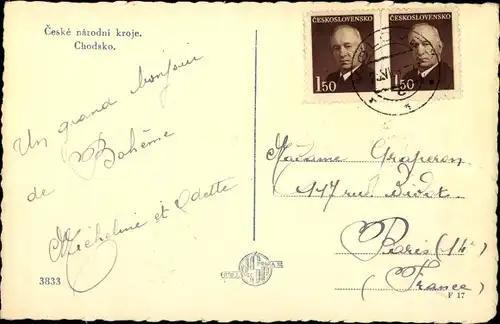 České národní kroje.
Chodsko.
Un grand bonjour
de Bohême
Micheline et Odette
3833
ČESKOSLOVENSKO
1.50
ČESKOSLOVENSKO
1.50
Madame Graperon
117 rue Didot
Paris (14e)
(France)
F 17